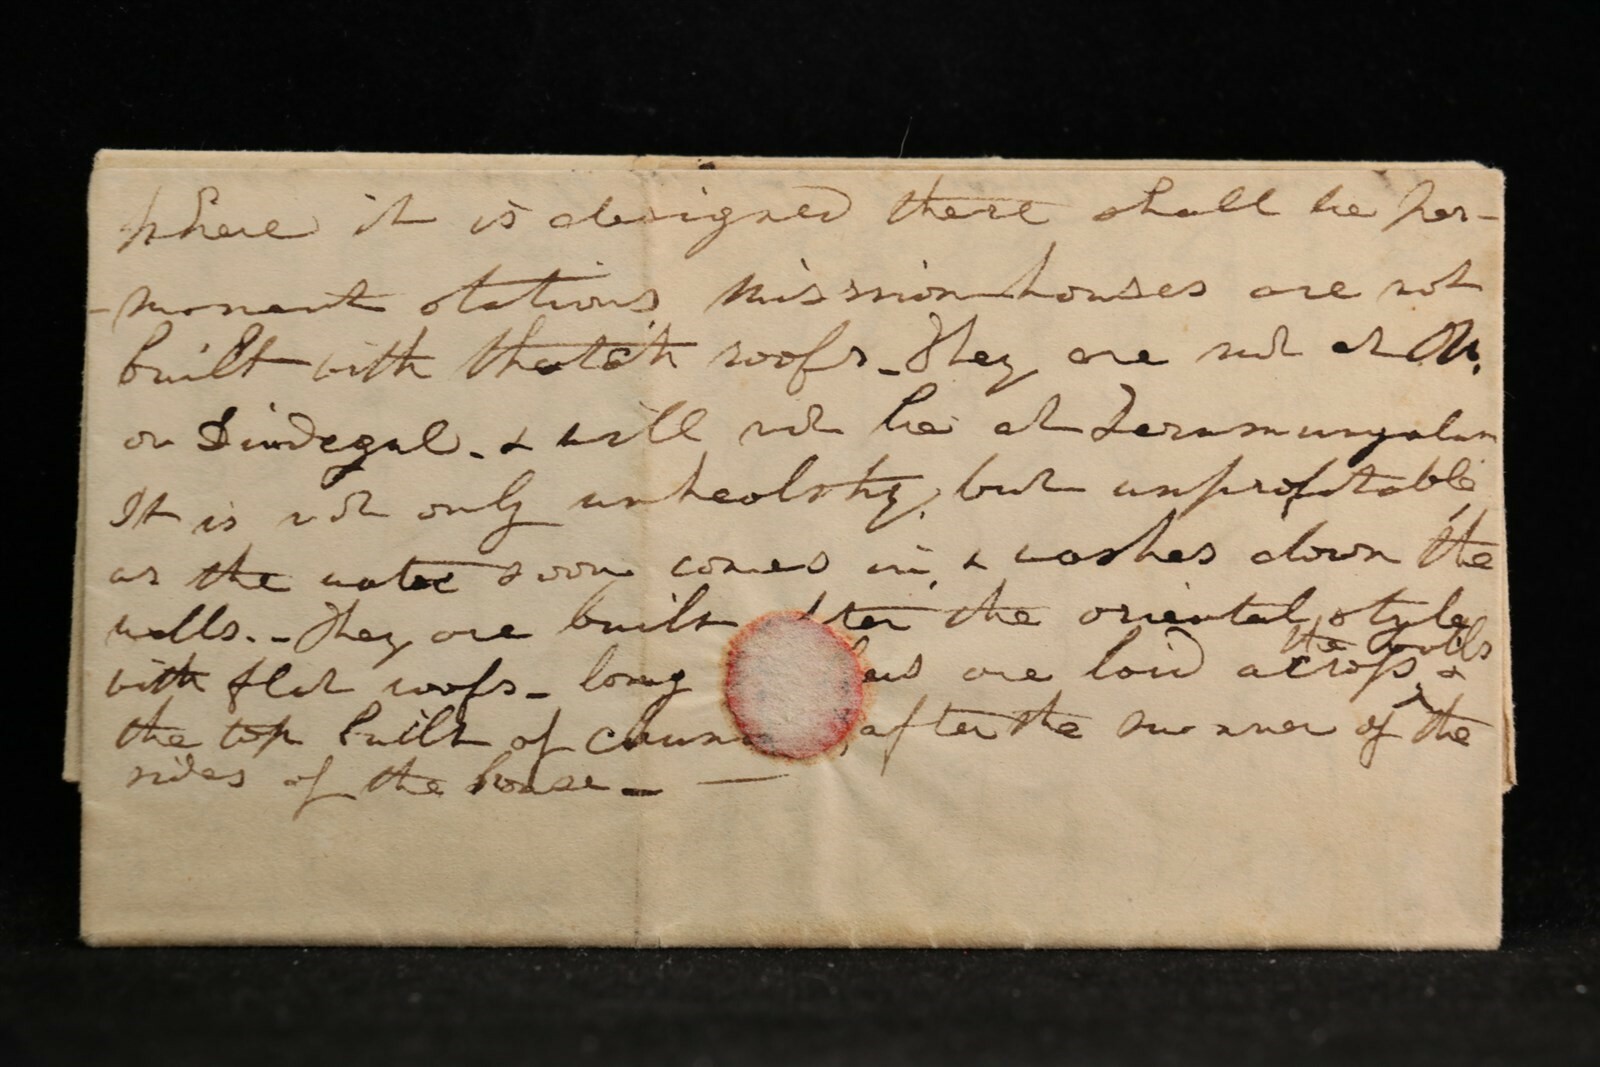 Where it is designed there shall be per-
-manent stations, mission houses are not
built with thatch roofs - They are not at M.
or Dindegal. & will not be at Terumungalum
It is not only unhealthy, but unprofitable,
as the water soon comes in, & washes down the
walls. - They are built after the oriental style
with flat roofs - long are laid across the walls &
the top built of , after the manner of the
sides of the house - —